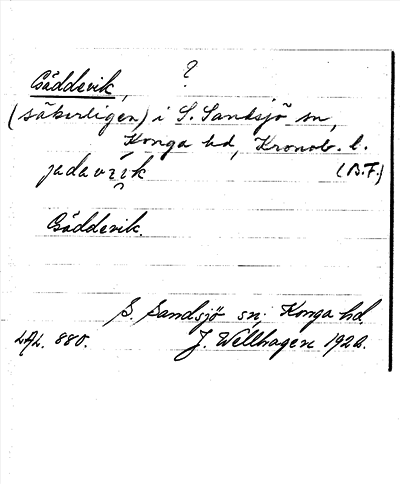 ?
Gäddevik,
(säkerligen) i S. Sandsjö sn,
Konga hd, Kronob. l.
jadavik (B.F.)
?
Gäddevik.
S. Sandsjö sn, Konga hd.
LAL. 880. J. Wellhagen 1928.